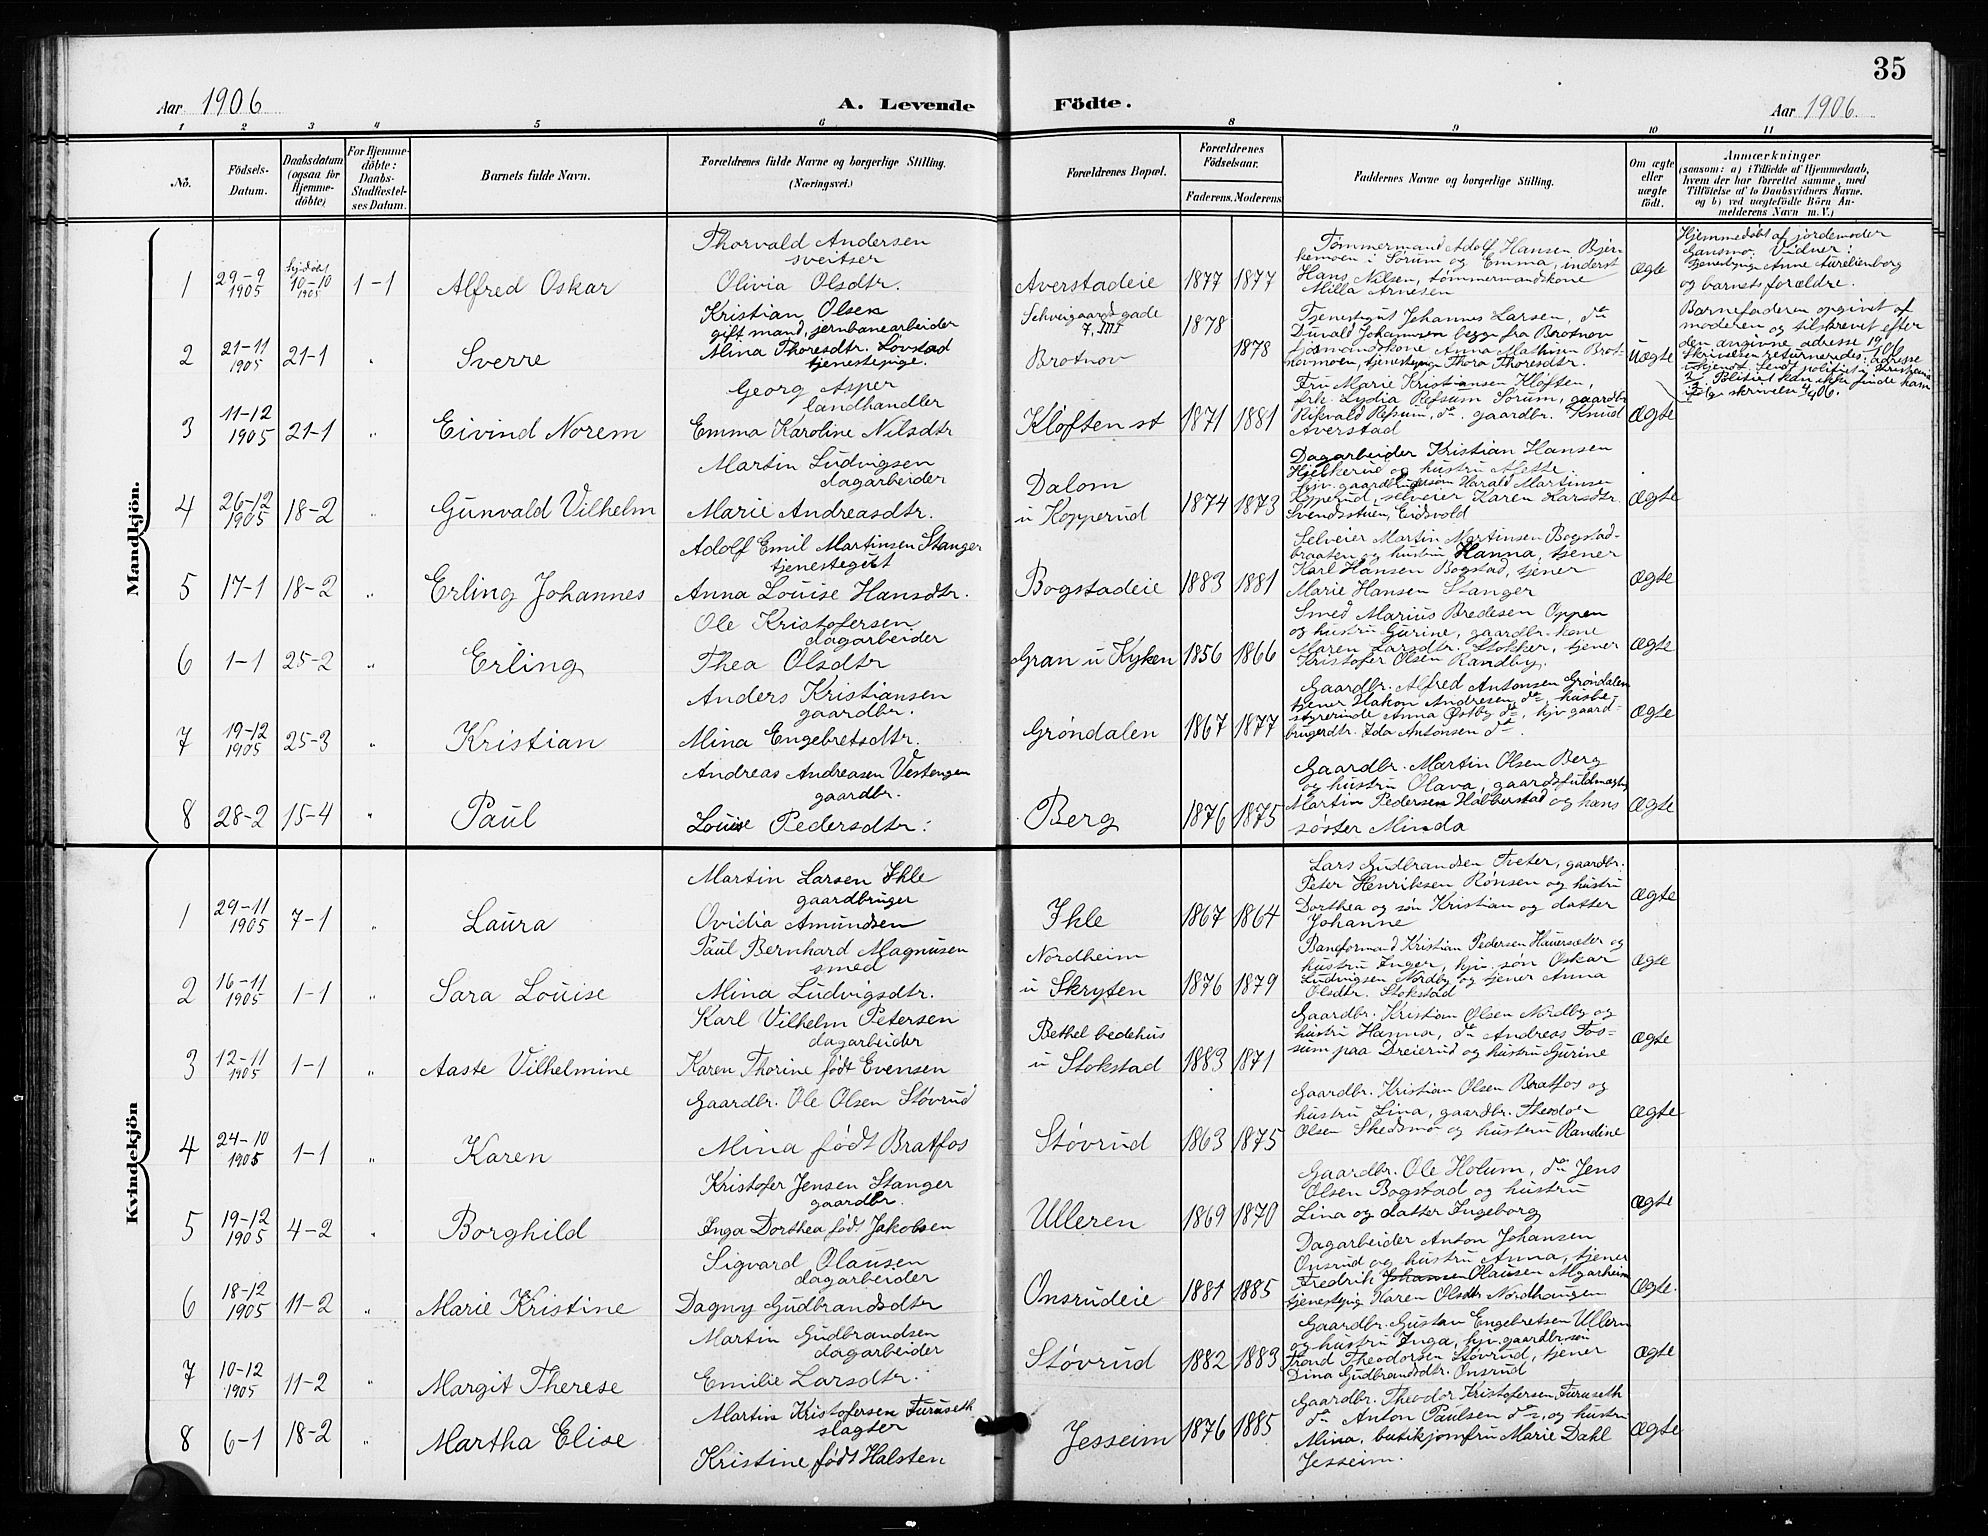 35
Aar 1906
A. Levende
Födte.
Aar 1906.
1 2 3 4 5 6 8 9 10 11
No.
Födsels-Datum.
Daabsdatum (ogsaa for Hjemmedöbte)
For Hjemmedöbte: Daabs-Stadfæstelses Datum.
Barnets fulde Navn.
Forældrenes fulde Navne og borgerlige Stilling.
(Næringsvei.)
Forældrenes Bopæl.
Forældrenes Födselsaar.
Faderens. Moderens.
Faddernes Navne og borgerlige Stilling.
Om ægte eller uægte födt.
Anmærkninger
(saasom: a) i Tilfælde af Hjemmedaab,
hvem der har forrettet samme, med
Tilföielse af to Daabsvidners Navne.
og b) ved uægtefödte Börn An-
melderens Navn m. V.)
Mandkjön.
1
29-9 1905
hjdøbt 10-10 1905
1-1
Alfred Oskar
Thorvald Andersen
sveitser
Olivia Olsdtr.
Averstadeie
1877 1877
Tømmermand Adolf Hansen Bjer-
kemoen i Sørum og Emma, inderst
Hans Nilsen, tømmermandskone
Milla Arnesen
Ægte
Hjemmedøbt af jordemoder
Gansmo. Vidner:
tjenestepige Anne Aurelienborg
og barnets forældre.
2
21-11 1905
21-1
"
Sverre
Kristian Olsen
gift mand, jernbanearbeider
Mina Thoresdtr. Lovstad
tjenestepige.
Schweigaardsgade
7, III
Brotnov
1878
1878
Tjenestegut Johannes Larsen, do
Duvald Johannsen begge fra Brotnov
husmandskone Anna Mathisen Brot-
novmoen, tjenestepige Thora Thoresdtr.
Uægte
Barnefaderen opgivet af
moderen og tilskrevet efter
den angivne adresse 19/1 06
Skrivelsen returneredes: adresse
ukjendt. Sendt politiet i Kristiania
Politiet kan ikke finde ham
skrivelse 4/4 06.
3
11-12 1905
21-1
"
Eivind Norem
Georg Asper
landhandler
Emma Karoline Nilsdtr
Kløften st
1871 1881
Fru Marie Kristiansen Kløften,
frk. Lydia Refsum Sørum, gaardbr
Rikvald Refsum, do. gaardbr. Knud
Averstad
Ægte
4
26-12 1905
18-2
"
Gunvald Vilhelm
Martin Ludvigsen
dagarbeider
Marie Andreasdtr.
Dalom
u Kopperud
1874 1873
Dagarbeider Kristian Hansen
Hjelkerud og hustru Alette
hjv. gaardbrugersøn Harald Martinsen
Kopperud, selveier Karen Larsdtr.
Svendsstuen, Eidsvold
Ægte
5
17-1
18-2
"
Erling Johannes
Adolf Emil Martinsen Stanger
tjenestegut
Anna Louise Hansdtr.
Bogstadeie
1883 1881
Selveier Martin Martinsen Bogstad-
braaten og hustru Hanna, tjener
Karl Hansen Bogstad, tjener
Marie Hansen Stanger
Ægte
6
1-1
25-2
"
Erling
Ole Kristofersen
dagarbeider
Thea Olsdtr
Gran u Kyken
1856 1866
Smed Marius Bredesen Oppen
og hustru Gurine, gaardbr. kone
Maren Larsdtr. Stokker, tjener
Kristofer Olsen Randby.
Ægte
7
19-12 1905
25-3
"
Kristian
Anders Kristiansen
gaardbr.
Mina Engebretsdtr.
Grøndalen
1867 1877
Gaardbr. Alfred Antonsen Grøndalen
tjener Hakon Andresen do. husbe-
styrerinde Anna Østby do, hjv gaard-
brugerdtr. Ida Antonsen do.
Ægte
8
28-2
15-4
"
Paul
Andreas Andreasen Vestengen
gaardbr.
Louise Pedersdtr:
Berg
1876 1875
Gaardbr. Martin Olsen Berg
og hustru Olava, gaardsfuldmægtig
Martin Pedersen Habberstad og hans
søster Minda
Ægte
Kvindekjön
1
29-11 1905
7-1
"
Laura
Martin Larsen Ihle
gaardbruger
Ovidia Amundsen
Ihle
1867 1864
Lars Gudbrandsen Tveter, gaardbr.
Peter Henriksen Rønsen og hustru
Dorthea og søn Kristian og datter
Johanne
Ægte
2
16-11 1905
1-1
"
Sara Louise
Paul Bernhard Magnusen
smed
Mina Ludvigsdtr.
Nordheim
u Skryten
1876 1879
Baneformand Kristian Pedersen Hauersæter og
hustru Inger, hjv. søn Oskar
Ludvigsen Nordby og tjener Anna
Olsdtr. Stokstad
Ægte
3
12-11 1905
1-1
"
Aaste Vilhelmine
Karl Vilhelm Petersen
dagarbeider
Karen Thorine født Evensen
Bethel bedehus
u Stokstad
1883 1871
Gaardbr. Kristian Olsen Nordby og
hustru Hanna, do Andreas Fos-
sum paa Dreierud og hustru Gurine
Ægte
4
24-10 1905
1-1
"
Karen
Gaardbr. Ole Olsen Støvrud
Mina født Bratfos
Støvrud
1863 1875
Gaardbr. Kristian Olsen Bratfos og
hustru Lina, gaardbr. Theodor
Olsen Skedsmo og hustru Randine
Ægte
5
19-12 1905
4-2
"
Borghild
Kristofer Jensen Stanger
gaardbr.
Inga Dorthea født Jakobsen
Ulleren
1869 1870
Gaardbr. Ole Holum, do Jens
Olsen Bogstad og hustru
Lina og datter Ingeborg
Ægte
6
18-12 1905
11-2
"
Marie Kristine
Sigvard Olausen
dagarbeider
Dagny Gudbrandsdtr
Onsrudeie
1881 1885
Dagarbeider Anton Johansen
Onsrud og hustru Anna, tjener
Fredrik Johansen Olausen Algarheim
tjenestepige Karen Olsdtr Nordhaugen
Ægte.
7
10-12 1905
11-2
"
Margit Therese
Martin Gudbrandsen
dagarbeider
Emilie Larsdtr.
Støvrud
1882 1883
Gaardbr. Gustav Engebretsen Ullern
og hustru Inga, hjv. gaardbr. søn
Trond Theodorsen Støvrud, tjener
Dina Gudbrandsdtr. Onsrud
Ægte
8
6-1
18-2
"
Martha Elise
Martin Kristofersen Furuseth
slagter
Kristine født Halsten
Jesseim
1876 1885
Gaardbr. Theodor Kristofersen Furuseth
do Anton Paulsen do, og hustru
Mina, butikjomfru Marie Dahl
Jesseim.
Ægte